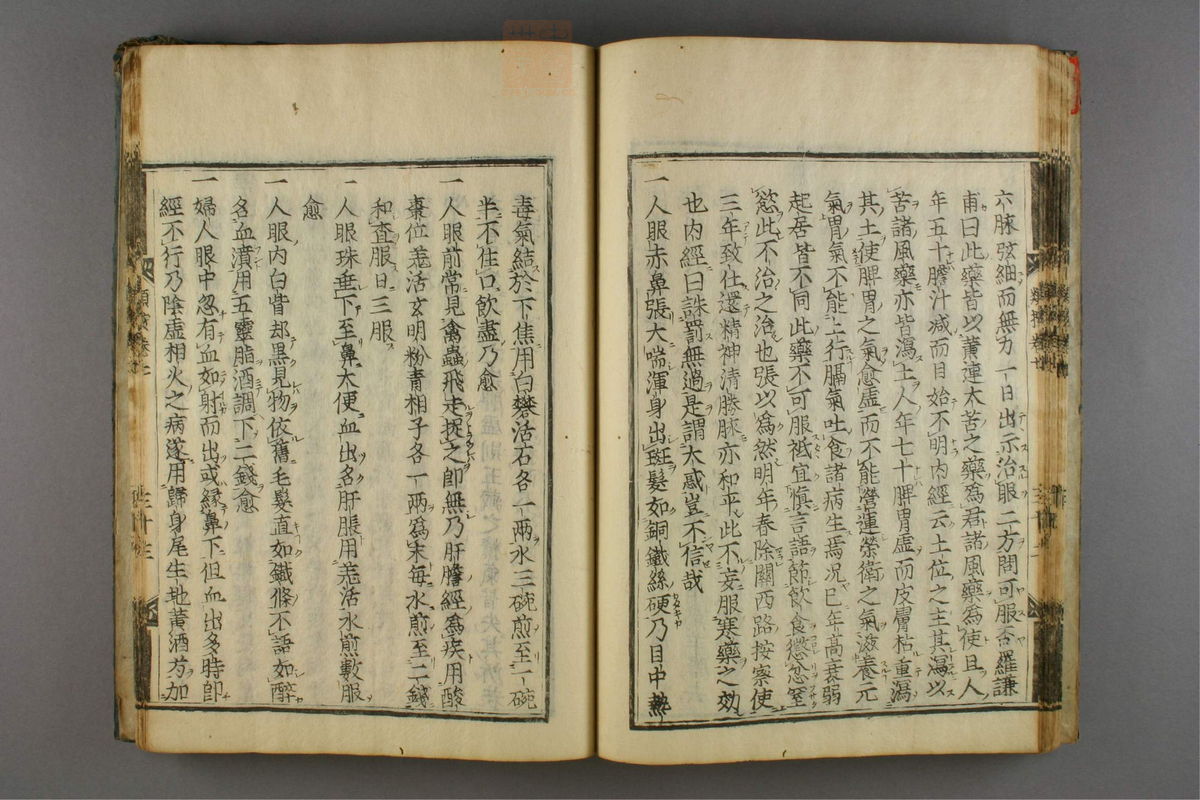 六脉弦細而無力一日出示治眼二方問可服否羅謙
甫曰此藥皆以黄連大苦之藥爲君諸風藥爲使且人
年五十膽汁減而目始不明内經云土位之主其瀉以
苦諸風藥亦皆瀉土人年七十脾胃虚而皮膚枯重瀉
其土使脾胃之氣愈虚而不能營運榮衛之氣滋養元
氣胃氣不能上行膈氣吐食諸病生焉况已年高衰弱
起居皆不同此藥不可服祗宜慎言語節飲食懲忿窒
慾此不治之治也張以爲然明年春除關西路按察使
三年致仕還精神清勝脉亦和平此不妄服寒藥之効
也内經曰誅罰無過是謂大惑豈不信哉
一人眼赤鼻張大喘渾身出斑髮如銅鐵絲硬乃目中熱
毒氣結於下焦用白礬活石各一兩水三碗煎至一碗
半不住口飲盡乃愈
一人眼前常見禽蟲飛走捉之卽無乃肝膽經爲疾用酸
棗位羗活玄明粉青相子各一兩爲末每水煎至二錢
和査服日三服
一人眼珠垂下至鼻大便血出名肝脹用羗活水煎數服
愈
一人眼内白眥却黒見物依舊毛髮直如鐵條不語如醉
名血潰用五靈脂酒調下二錢愈
一婦人眼中忽有血如射而出或縁鼻下但血出多時卽
經不行乃陰虚相火之病遂用歸身尾生地黄酒芍加